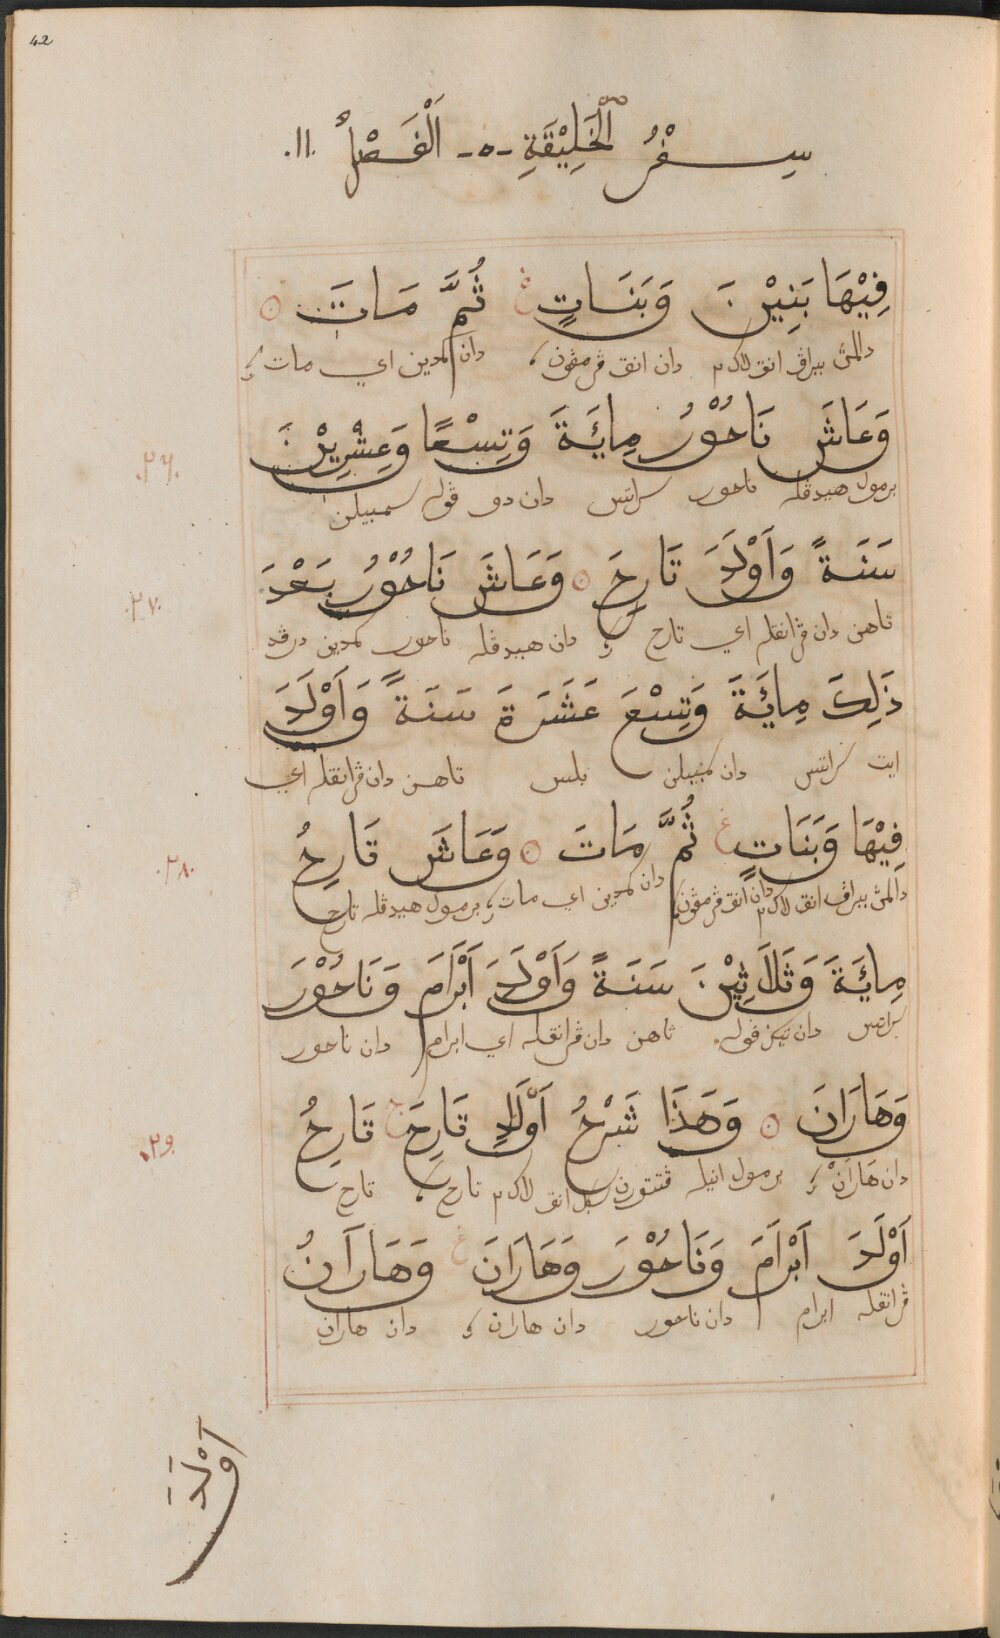 42
سِفْرُ الْخَلِيْقَةِ -٥- اَلْفَصْلُ .١١.
فِيْهَا بَنِيْنَ وَبَنَاتٍ ثُمَّ مَاتَ
دالمڽ ببراڤ انق لاكي٢ دان انق ڤرمڤون، دان كمدين اي مات
وَعَاشَ نَاحُوْرُ مِائَةَ وَتِسْعًا وَعِشْرِيْنَ
برمول هيدڤله ناحور سراتس دان دو ڤوله سمبيلن
.٢٦.
سَنَةً وَاَوْلَدَ تَارِحَ وَعَاشَ نَاحُوْرُ بَعْدَ
تاهن دان ڤرانقله اي تارح دان هيدڤله ناحور كمدين درڤد
.٢٧.
ذَلِكَ مِائَةَ وَتِسْعَ عَشَرَةَ سَنَةً وَاَوْلَدَ
ايت سراتس دان سمبيلن بلس تاهن دان ڤرانقله اي
فِيْهَا وَبَنَاتٍ ثُمَّ مَاتَ وَعَاشَ تَارِحُ
دالمڽ ببراڤ انق لاكي٢ دان انق ڤرمڤون، دان كمدين اي مات، برمول هيدڤله تارح
.٢٨.
مِائَةَ وَثَلَاثِيْنَ سَنَةً وَاَوْلَدَ اَبْرَامَ وَنَاحُوْرَ
سراتس دان تيݢ ڤوله تاهن دان ڤرانقله اي ابرام دان ناحور
وَهَارَانَ وَهَذَا شَرْحُ اَوْلَادِ تَارِحَ تَارِحُ
دان هَارَانْ برمول اينيله ڤنتورن سݢل انق لاكي٢ تارح، تارح
.٢٩.
اَوْلَدَ اَبْرَامَ وَنَاحُوْرَ وَهَارَانَ وَهَارَانُ
ڤرانقله ابرام دان ناحور دان هاران دان هاران
اَوْلَدَ